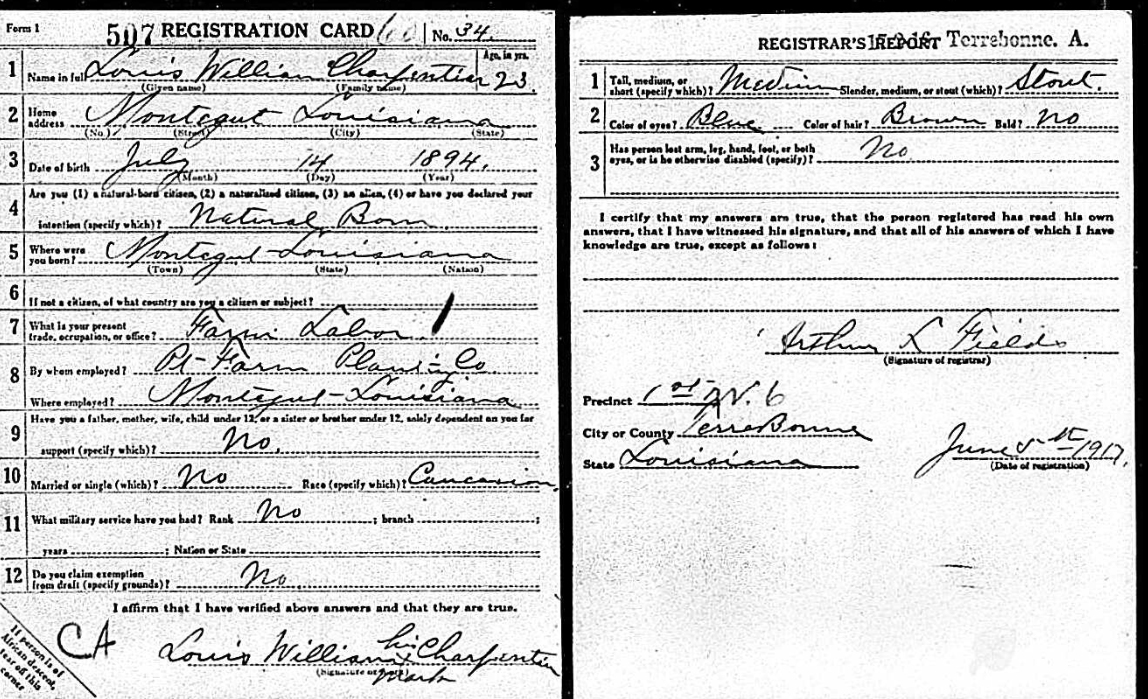 Form 1 507 REGISTRATION CARD No. 34
Age, in yrs.
1 Name in full Louis William Charpentier 23
(Given name) (Family name)
2 Home address Montegut Louisiana
(No.) (Street) (City) (State)
3 Date of birth July 14 1894.
(Month) (Day) (Year)
Are you (1) a natural-born citizen, (2) a naturalized citizen, (3) an alien, (4) or have you declared your
4 intention (specify which)? Natural Born
5 Where were you born? Montegut Louisiana
(Town) (State) (Nation)
6 If not a citizen, of what country are you a citizen or subject?
7 What is your present trade, occupation, or office? Farm Labor
8 By whom employed? Pt Farm Co
Where employed? Montegut - Louisiana
Have you a father, mother, wife, child under 12, or a sister or brother under 12, solely dependent on you for
9 support (specify which)? No.
10 Married or single (which)? No Race (specify which)? Caucasian
11 What military service have you had? Rank No ; branch ;
years ; Nation or State
12 Do you claim exemption from draft (specify grounds)? No
I affirm that I have verified above answers and that they are true.
CA Louis William his Charpentier
(Signature or mark) mark
If person is of
African descent,
tear off this
corner
REGISTRAR'S REPORT Terrebonne. A.
1 Tall, medium, or short (specify which)? Medium Slender, medium, or stout (which)? Stout.
2 Color of eyes? Blue Color of hair? Brown Bald? No
3 Has person lost arm, leg, hand, foot, or both
eyes, or is he otherwise disabled (specify)? No
I certify that my answers are true, that the person registered has read his own
answers, that I have witnessed his signature, and that all of his answers of which I have
knowledge are true, except as follows:
Arthur L Fields
(Signature of registrar)
Precinct 1st W. 6
City or County TerreBonne
State Louisiana
June 5th 1917.
(Date of registration)